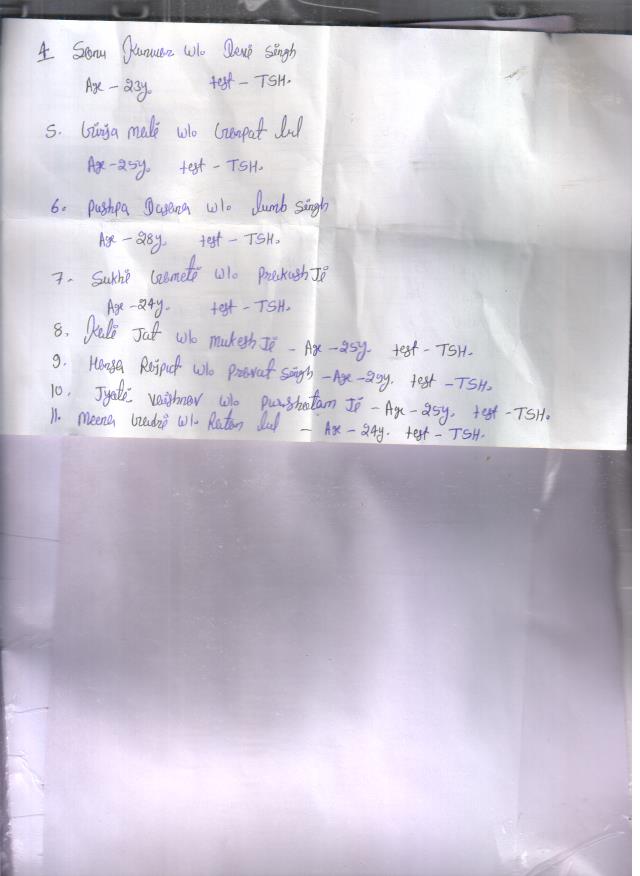 4. Sonu Kunwar w/o Devi Singh
Age - 23y. test - TSH.
5. Girja mali w/o Ganpat lal
Age - 25y. test - TSH.
6. Pushpa w/o lumb Singh
Age - 28y. test - TSH.
7. Sukhi Gameti w/o Prakash Ji
Age - 24y. test - TSH.
8. Jat w/o mukesh Ji - Age - 25y. test - TSH.
9. Hansa Rajput w/o Pravat Singh - Age - 29y. test - TSH.
10. Jyati Vaishnav w/o Purshotam Ji - Age - 25y. test - TSH.
11. Meena w/o Ratan lal - Age - 24y. test - TSH.